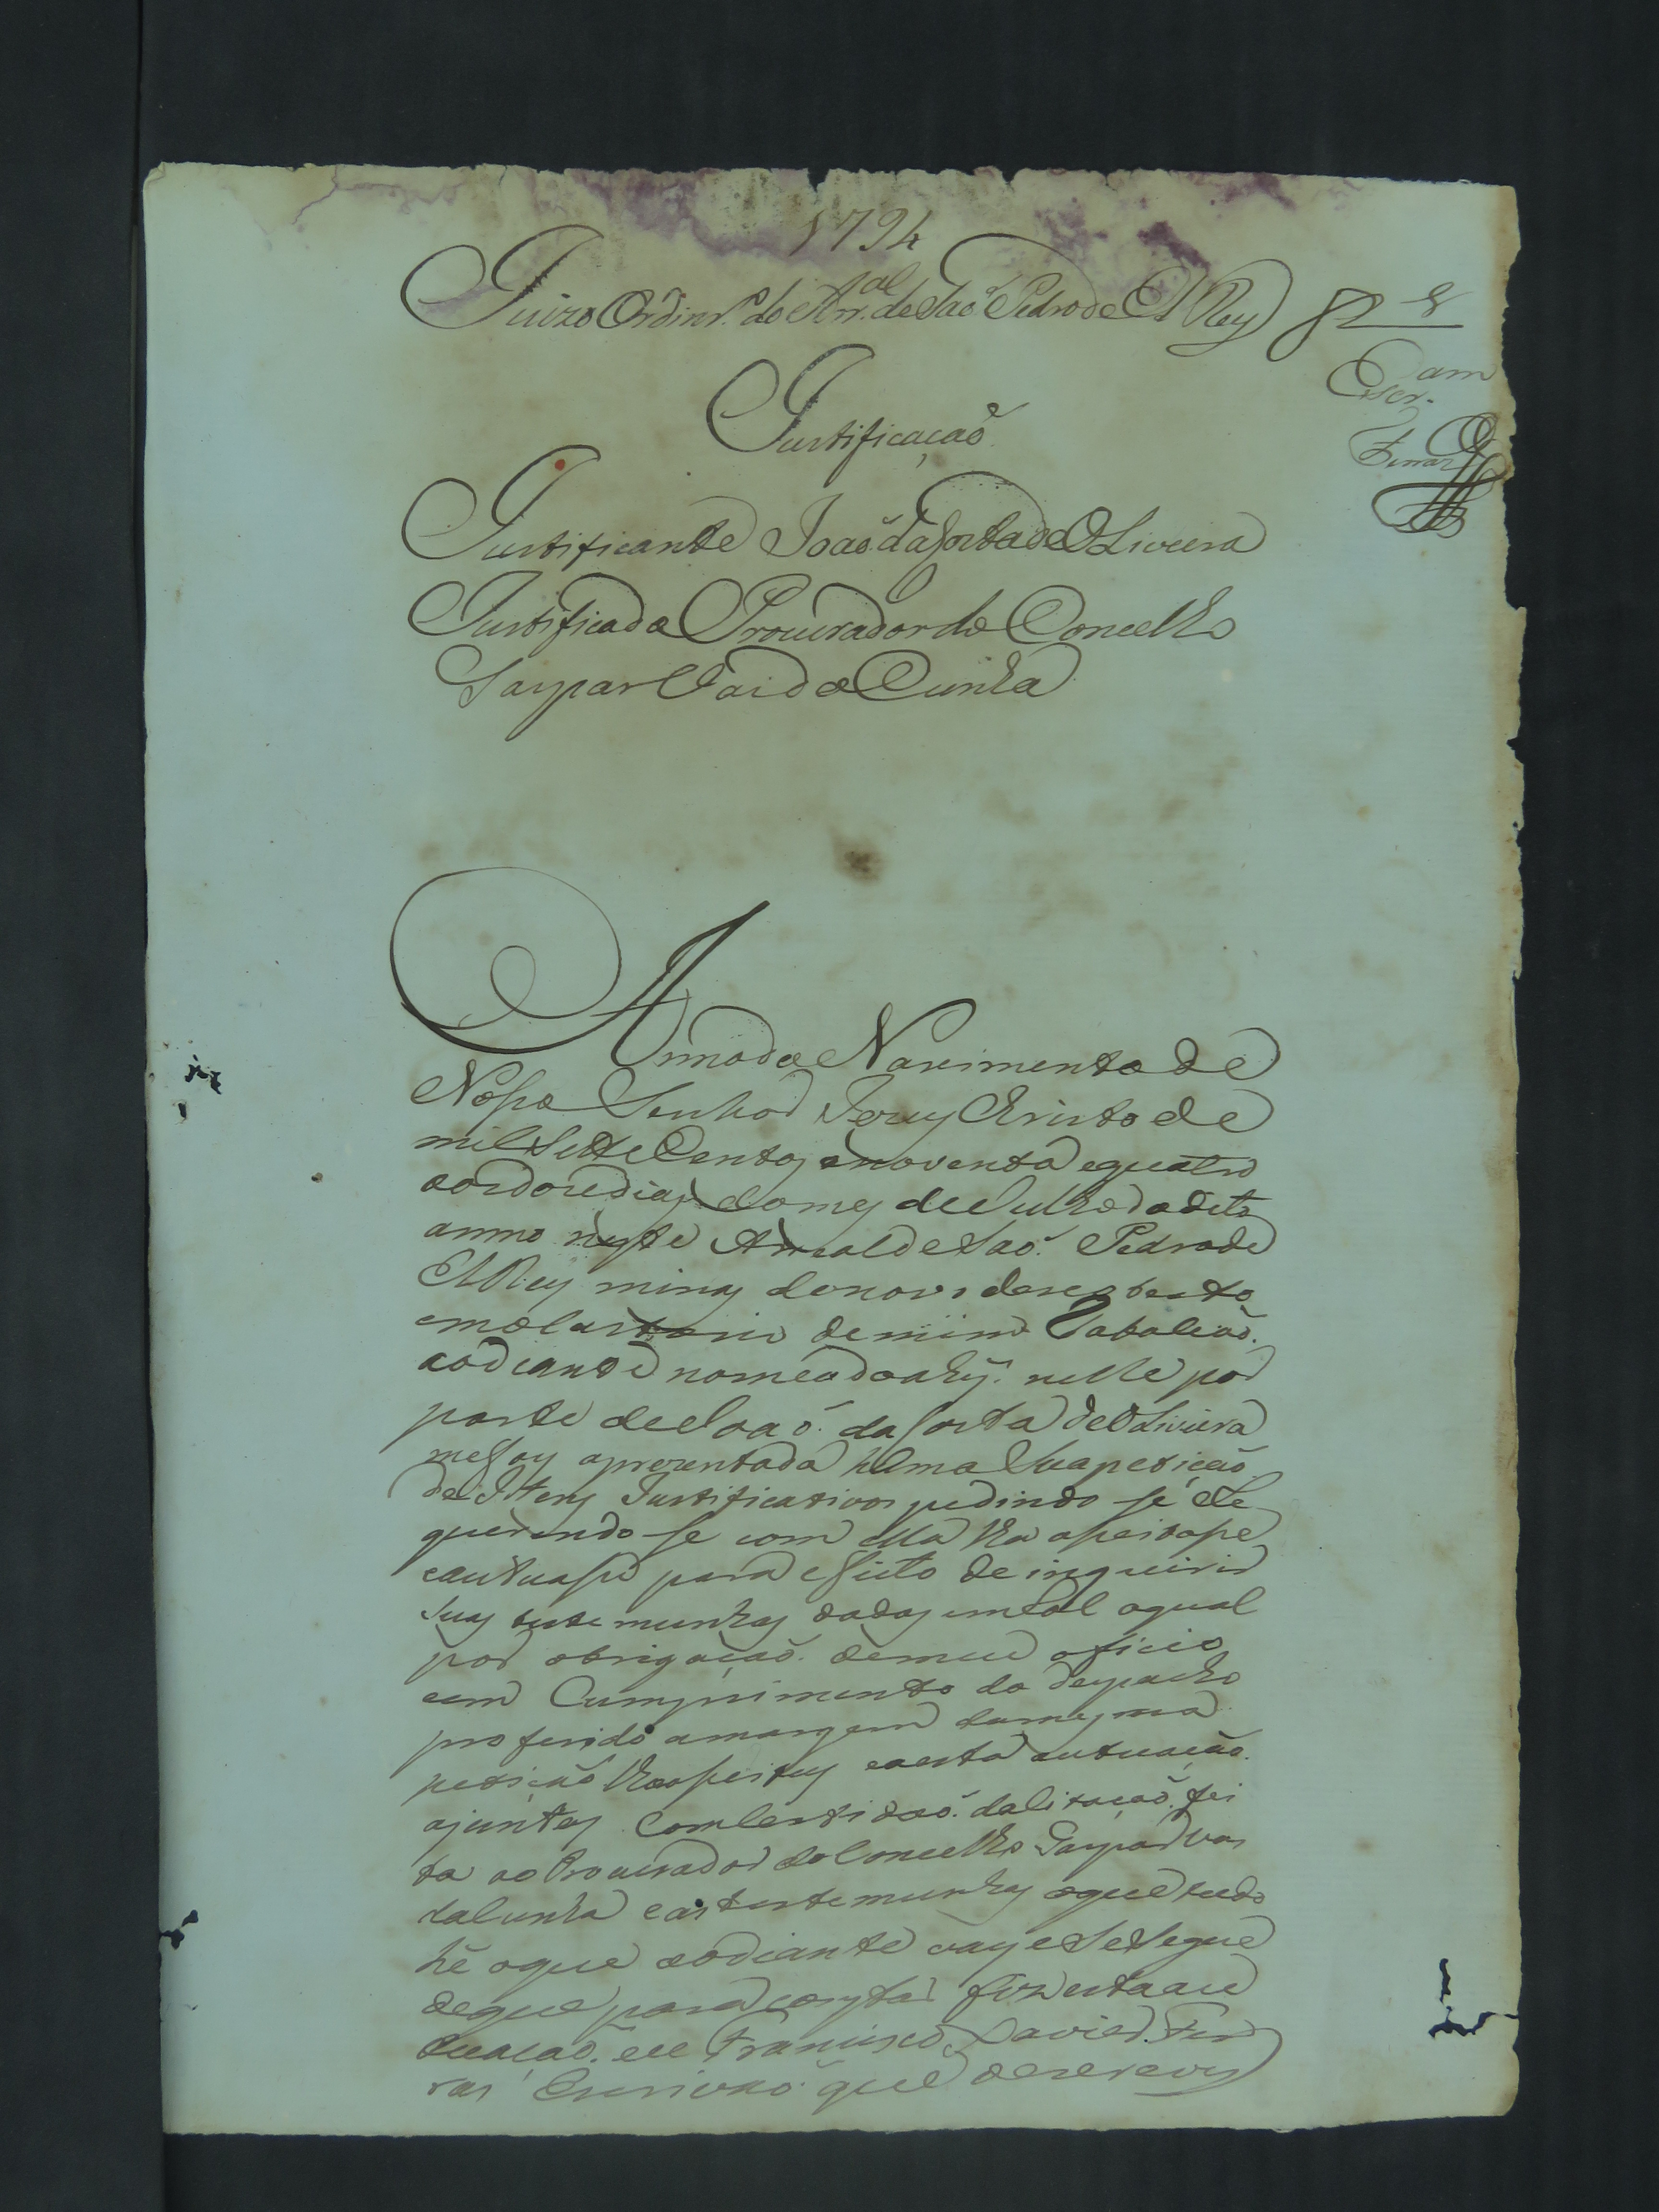 1794
Juizo Ordinr.º do Arr.al de São Pedro de El Rey
Justificação
Justificante João da Costa de OLiveira
Justificado o Procurador do Concelho
Gaspar Vas da Cunha
Anno do Nacimento de
Nosso Senhor Jezus Christo de
mil Sette Centos e noventa e quatro
aos doze dias do mes de Julho do dito
anno neste Arraial de São Pedro de
El Rey minas do novo descuberto
em o Cartorio de mim Tabalião
ao diante nomeado ahy nelle por
parte de João da Costa de OLiveira
me foy aprezentada huma Sua petição
de Itens Justificativos pedindo se e Re
querendo se com ella lha aseitasse
e autuasse para efeito de inquirir
suas testemunhas dadas em Rol a qual
por obrigação de meu oficio
em Cumprimento do despacho
proferido a margem da mesma
petição lha aseitey e a esta autuação
ajuntey com a Certidão da Citação fei
ta ao Procurador do Concelho Gaspar Vas
da Cunha e as testemunhas o que tudo
hé o que ao diante vay e Se Segue
de que para constar fiz esta au
tuação. eu Francisco Xavier Fer
ras Escrivão que o escrevy